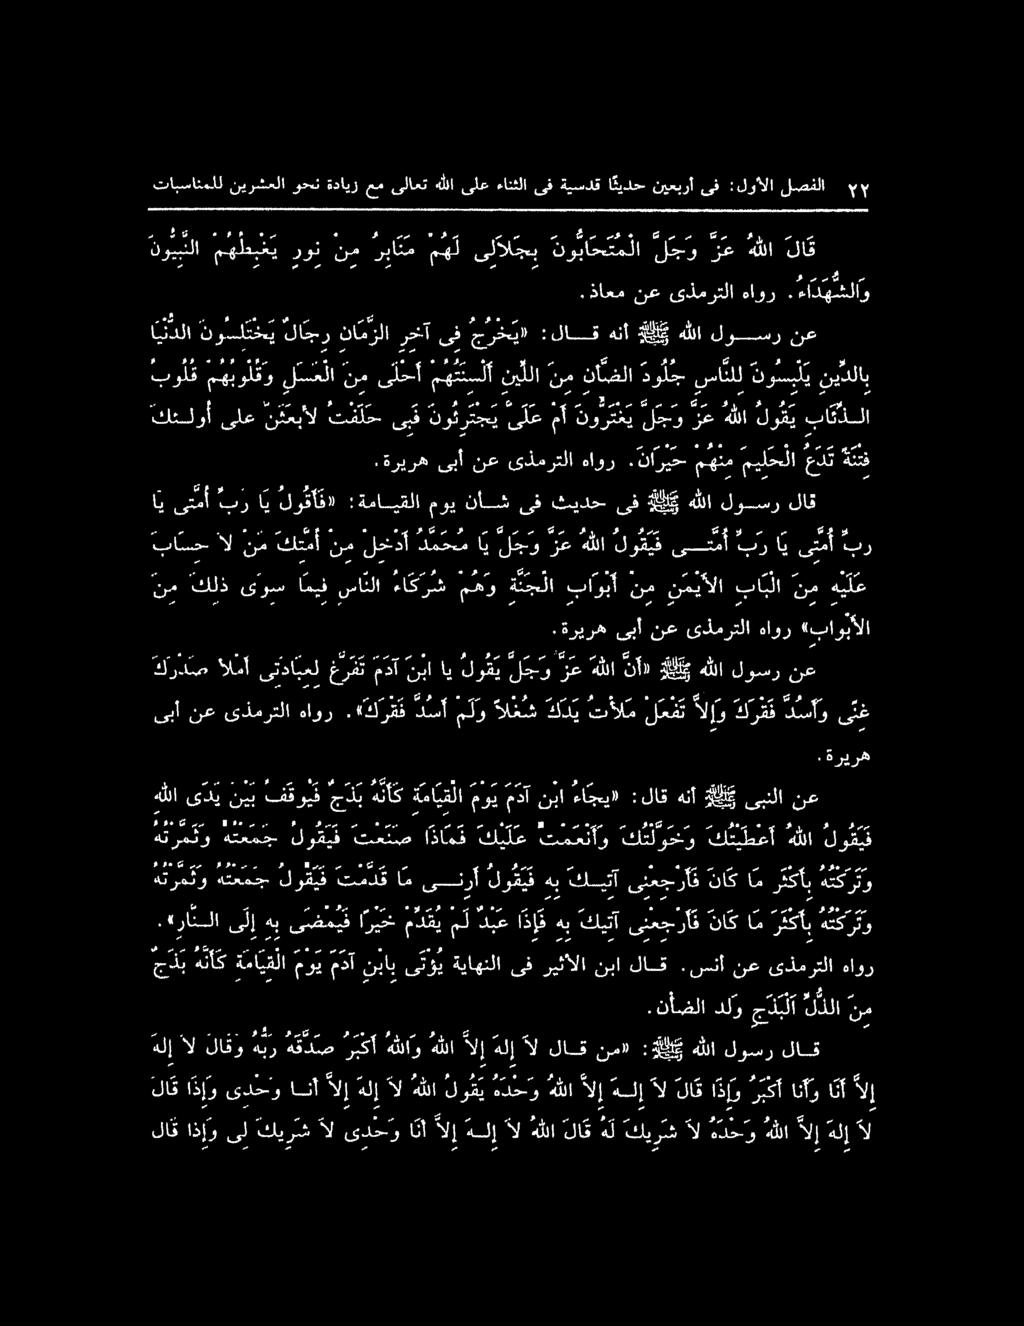 ٢٢ الفصل الأول: فى أربعين حديثًا قدسية فى الثناء على الله تعالى مع زيادة نحو العشرين للمناسبات
قَالَ اللهُ عَزَّ وَجَلَّ الْمُتَحَابُّونَ بِجَلاَلِى لَهُمْ مَنَابِرُ مِنْ نُورٍ يَغْبِطُهُمْ النَّبِيُّونَ
وَالشُّهَدَاءُ. رواه الترمذى عن معاذ.
عن رسول الله ﷺ أنه قال: «يَخْرُجُ فِى آخِرِ الزَّمَانِ رِجَالٌ يَخْتَلِسُونَ الدُّنْيَا
بِالدِّينِ يَلْبِسُونَ لِلنَّاسِ جُلُودَ الضَّأْنِ مِنَ اللِّينِ أَلْسِنَتُهُمْ أَحْلَى مِنَ الْعَسَلِ وَقُلُوبُهُمْ قُلُوبُ
الذِّئَابِ يَقُولُ اللهُ عَزَّ وَجَلَّ يَغْتَرُّونَ أَمْ عَلَىَّ يَجْتَرِئُونَ فَبِى حَلَفْتُ لأَبعَثَنّ على أُولئكَ
فِتْنَةً تَدَعُ الْحَلِيمَ مِنْهُمْ حَيْرَانَ. رواه الترمذى عن أبى هريرة.
قال رسول الله ﷺ فى حديث فى شأن يوم القيامة: «فَأَقُولُ يَا رَبِّ أُمَّتِى يَا
رَبِّ أُمَّتِى يَا رَبِّ أُمَّتِى فَيَقُولُ اللهُ عَزَّ وَجَلَّ يَا مُحَمَّدُ أَدْخِلْ مِنْ أُمَّتِكَ مَنْ لاَ حِسَابَ
عَلَيْهِ مِنَ الْبَابِ الأَيْمَنِ مِنْ أَبْوَابِ الْجَنَّةِ وَهُمْ شُرَكَاءُ النَّاسِ فِيمَا سِوَى ذلِكَ مِنَ
الأَبْوَابِ» رواه الترمذى عن أبى هريرة.
عن رسول الله ﷺ «أَنَّ اللهَ عَزَّ وَجَلَّ يَقُولُ يا ابْنَ آدَمَ تَفَرَّغْ لِعِبَادَتِى أَمْلأْ صَدْرَكَ
غِنًى وَأَسُدَّ فَقْرَكَ وَإِلاَّ تَفْعَلْ مَلأْتُ يَدَكَ شُغْلاً وَلَمْ أَسُدَّ فَقْرَكَ». رواه الترمذى عن أبى
هريرة.
عن النبى ﷺ أنه قال: «يجَاءُ ابن آدَمَ يَوْمَ الْقِيَامَةِ كَأَنَّهُ بَذَجٌ فَيُوقَفُ بَيْنَ يَدَىِ اللهِ
فَيَقُولُ اللهُ أَعْطَيْتُكَ وَخَوَّلْتُكَ وَأَنْعَمْتُ عَلَيْكَ فَمَاذَا صَنَعْتَ فَيَقُولُ جَمَعْتُهُ وَثَمَّرْتُهُ
وَتَرَكْتُهُ بِأَكْثَرِ مَا كَانَ فَأَرْجِعْنِى آتِيكَ بِهِ فَيَقُولُ أَرِنِى مَا قَدَّمْتَ فَيَقُولُ جَمَعْتُهُ وَثَمَّرْتُهُ
وَتَرَكْتُهُ بِأَكْثَرِ مَا كَانَ فَأَرْجِعْنِى آتِيكَ بِهِ فَإِذَا عَبْدٌ لَمْ يُقَدِّمْ خَيْرًا فَيُمْضَى بِهِ إِلَى النَّارِ».
رواه الترمذى عن أنس. قال ابن الأثير فى النهاية يُؤْتَى بِابْنِ آدَمَ يَوْمَ الْقِيَامَةِ كَأَنَّهُ بَذَجٌ
مِنَ الذُّلِّ اَلْبَذَجِ وَلد الضأن.
قال رسول الله ﷺ: «من قال لاَ إِلهَ إِلاَّ اللهُ وَاللهُ أَكْبَرُ صَدَّقَهُ رَبُّهُ وَقَالَ لاَ إِلهَ
إِلاَّ أَنَا وَأَنا أَكْبَرُ وَإِذَا قَالَ لاَ إِلهَ إِلاَّ اللهُ وَحْدَهُ يَقُولُ اللهُ لاَ إِلهَ إِلاَّ أَنا وَحْدِى وَإِذَا قَالَ
لاَ إِلهَ إِلاَّ اللهُ وَحْدَهُ لاَ شَرِيكَ لَهُ قَالَ اللهُ لاَ إِلهَ إِلاَّ أَنَا وَحْدِى لاَ شَرِيكَ لِى وَإِذا قَال